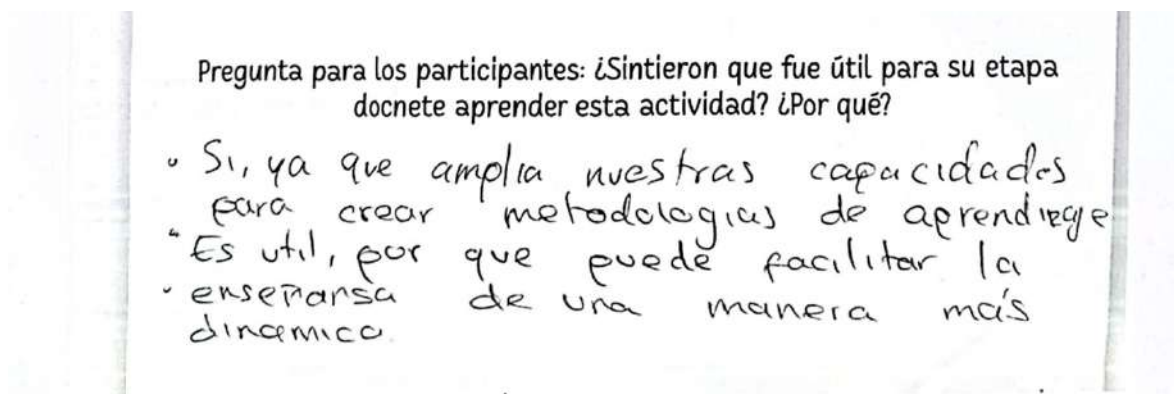 Pregunta para los participantes: ¿Sintieron que fue útil para su etapa
docnete aprender esta actividad? ¿Por qué?
• Si, ya que amplia nuestras capacidades
para crear metodologias de aprendizaje
• Es util, por que puede facilitar la
• enseñansa de una manera más
dinamica.